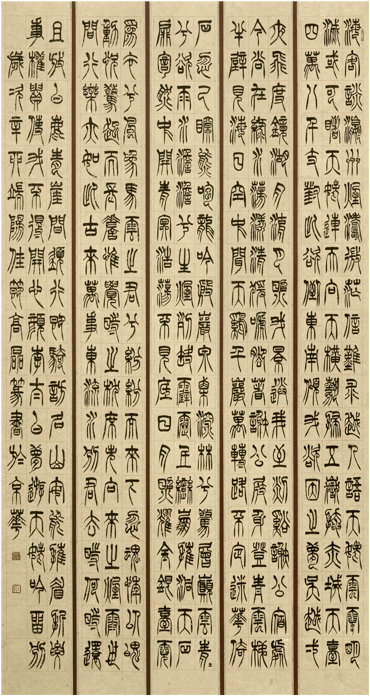 海客談瀛洲煙濤微茫信難求越人語天姥雲霓明
滅或可睹天姥連天向天橫勢拔五岳掩赤城天臺
四萬八千丈對此欲倒東南傾我欲因之夢吳越一
夜飛度鏡湖月湖月照我影送我至剡溪謝公宿處
今尚在淥水蕩漾清猿啼腳著謝公屐身登青雲梯
半壁見海日空中聞天雞千巖萬轉路不定迷花倚
石忽已暝熊咆龍吟殷巖泉慄深林兮驚層巔雲青
兮欲雨水澹澹兮生煙列缺霹靂丘巒崩摧洞天石
扉訇然中開青冥浩蕩不見底日月照耀金銀臺霓
為衣兮風為馬雲之君兮紛紛而來下忽魂悸以魄
動怳驚起而長嗟惟覺時之枕席失向來之煙霞世
間行樂亦如此古來萬事東流水別君去時何時還
且放白鹿青崖間須行即騎訪名山安能摧眉折腰
事權貴使我不得開心顏李太白夢遊天姥吟留別
歲次辛卯端陽佳節高磊篆書於京華